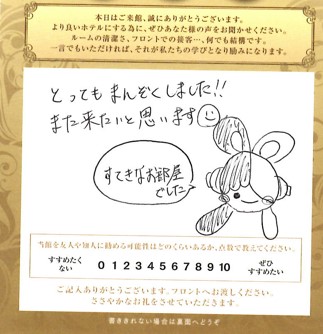 本日はご来館、誠にありがとうございます。
より良いホテルにする為に、ぜひあなた様の声をお聞かせください。
ルームの清潔さ、フロントでの接客…、何でも結構です。
一言でもいただければ、それが私たちの学びとなり励みになります。
とってもまんぞくしました!!
また来たいと思います
すてきなお部屋
でした
当館を友人や知人に勧める可能性はどのくらいあるか、点数で教えてください。
すすめたく
ない
0 1 2 3 4 5 6 7 8 9 10
ぜひ
すすめたい
ご記入ありがとうございます。フロントへお渡しください。
ささやかなお礼をさせていただきます。
書ききれない場合は裏面へどうぞ